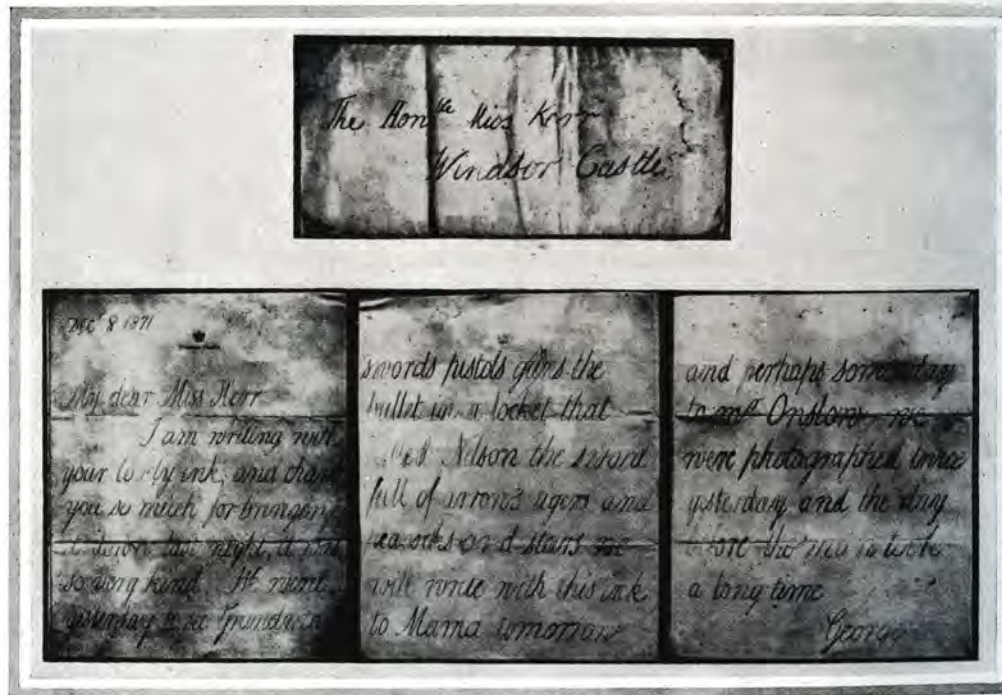 The Honble Miss Kerr
Windsor Castle
Decr 8 1871
My dear Miss Kerr
I am writing with
your lovely ink, and thank
you so much for bringing
it down last night, it was
so very kind. We went
yesterday to
swords pistols guns the
bullet in a locket that
Nelson the
full of arrows and
peacocks and stars we
will write with this ink
to Mama tomorrow
and perhaps some day
to Mr Onslow we
were photographed twice
yesterday and the day
before the man took
a long time
George